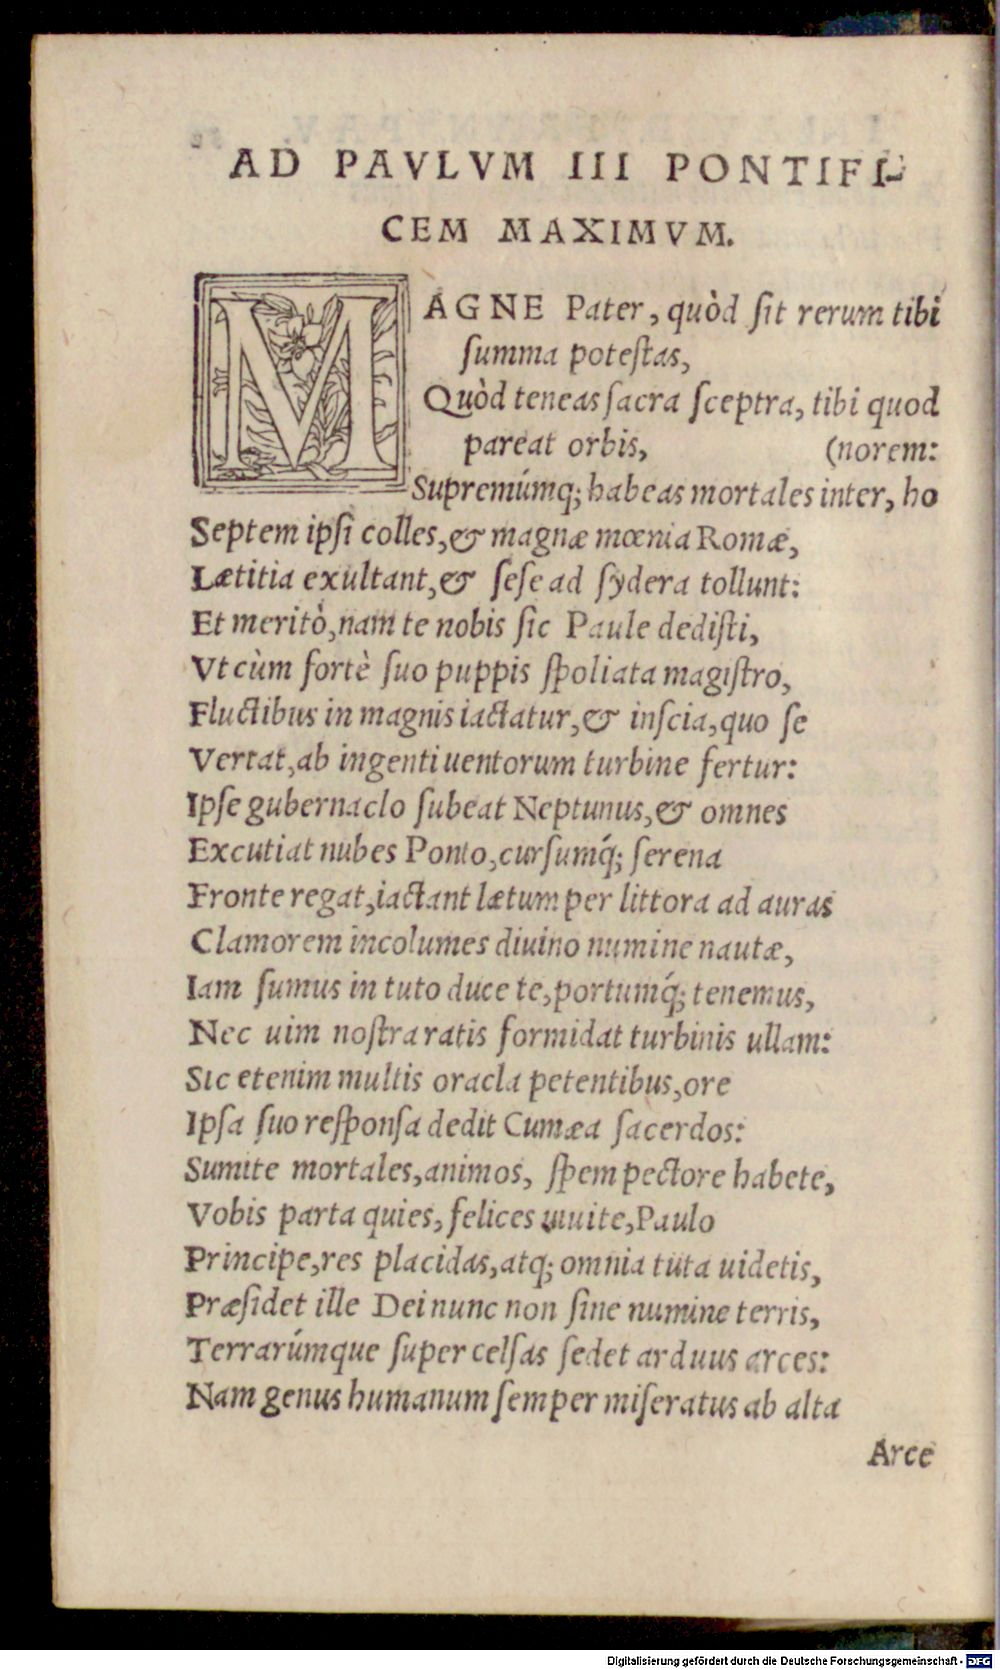 AD PAVLVM III PONTIFI-
CEM MAXIMVM.
MAGNE Pater, quòd ſit rerum tibi
ſumma poteſtas,
Quòd teneas ſacra ſceptra, tibi quod
pareat orbis, (norem:
Supremúmq; habeas mortales inter, ho
Septem ipſi colles, & magnæ mœnia Romæ,
Lætitia exultant, & ſeſe ad ſydera tollunt:
Et meritò, nam te nobis ſic Paule dediſti,
Vt cùm fortè ſuo puppis ſpoliata magiſtro,
Fluctibus in magnis iactatur, & inſcia, quo ſe
Vertat, ab ingenti uentorum turbine fertur:
Ipſe gubernaclo ſubeat Neptunus, & omnes
Excutiat nubes Ponto, curſumq́; ſerena
Fronte regat, iactant lætum per littora ad auras
Clamorem incolumes diuino numine nautæ,
Iam ſumus in tuto duce te, portumq́; tenemus,
Nec uim noſtra ratis formidat turbinis ullam:
Sic etenim multis oracla petentibus, ore
Ipſa ſuo reſponſa dedit Cumæa ſacerdos:
Sumite mortales, animos, ſpem pectore habete,
Vobis parta quies, felices uiuite, Paulo
Principe, res placidas, atq; omnia tuta uidetis,
Præſidet ille Dei nunc non ſine numine terris,
Terrarúmque ſuper celſas ſedet arduus arces:
Nam genus humanum ſemper miſeratus ab alta
Arce
Digitalisierung gefördert durch die Deutsche Forschungsgemeinschaft - DFG